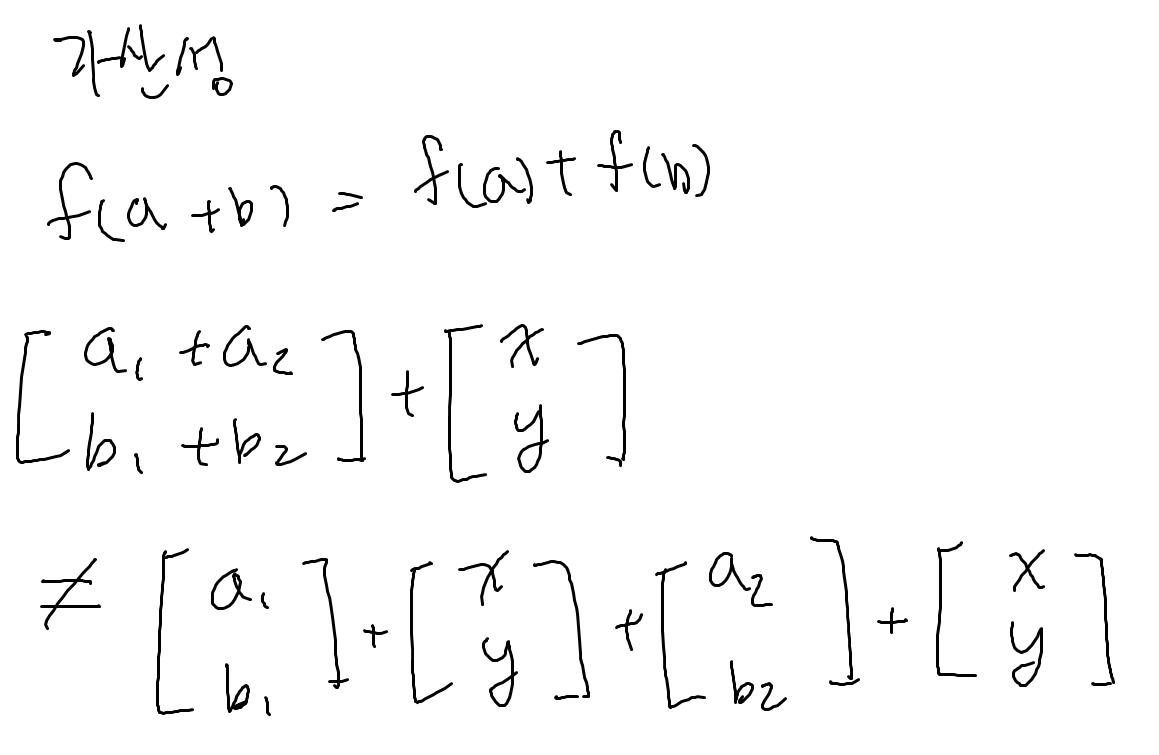 가산성
f(a+b) = f(a) + f(b)
[a₁ + a₂ b₁ + b₂] + [x y]
≠ [a₁ b₁] + [x y] + [a₂ b₂] + [x y]